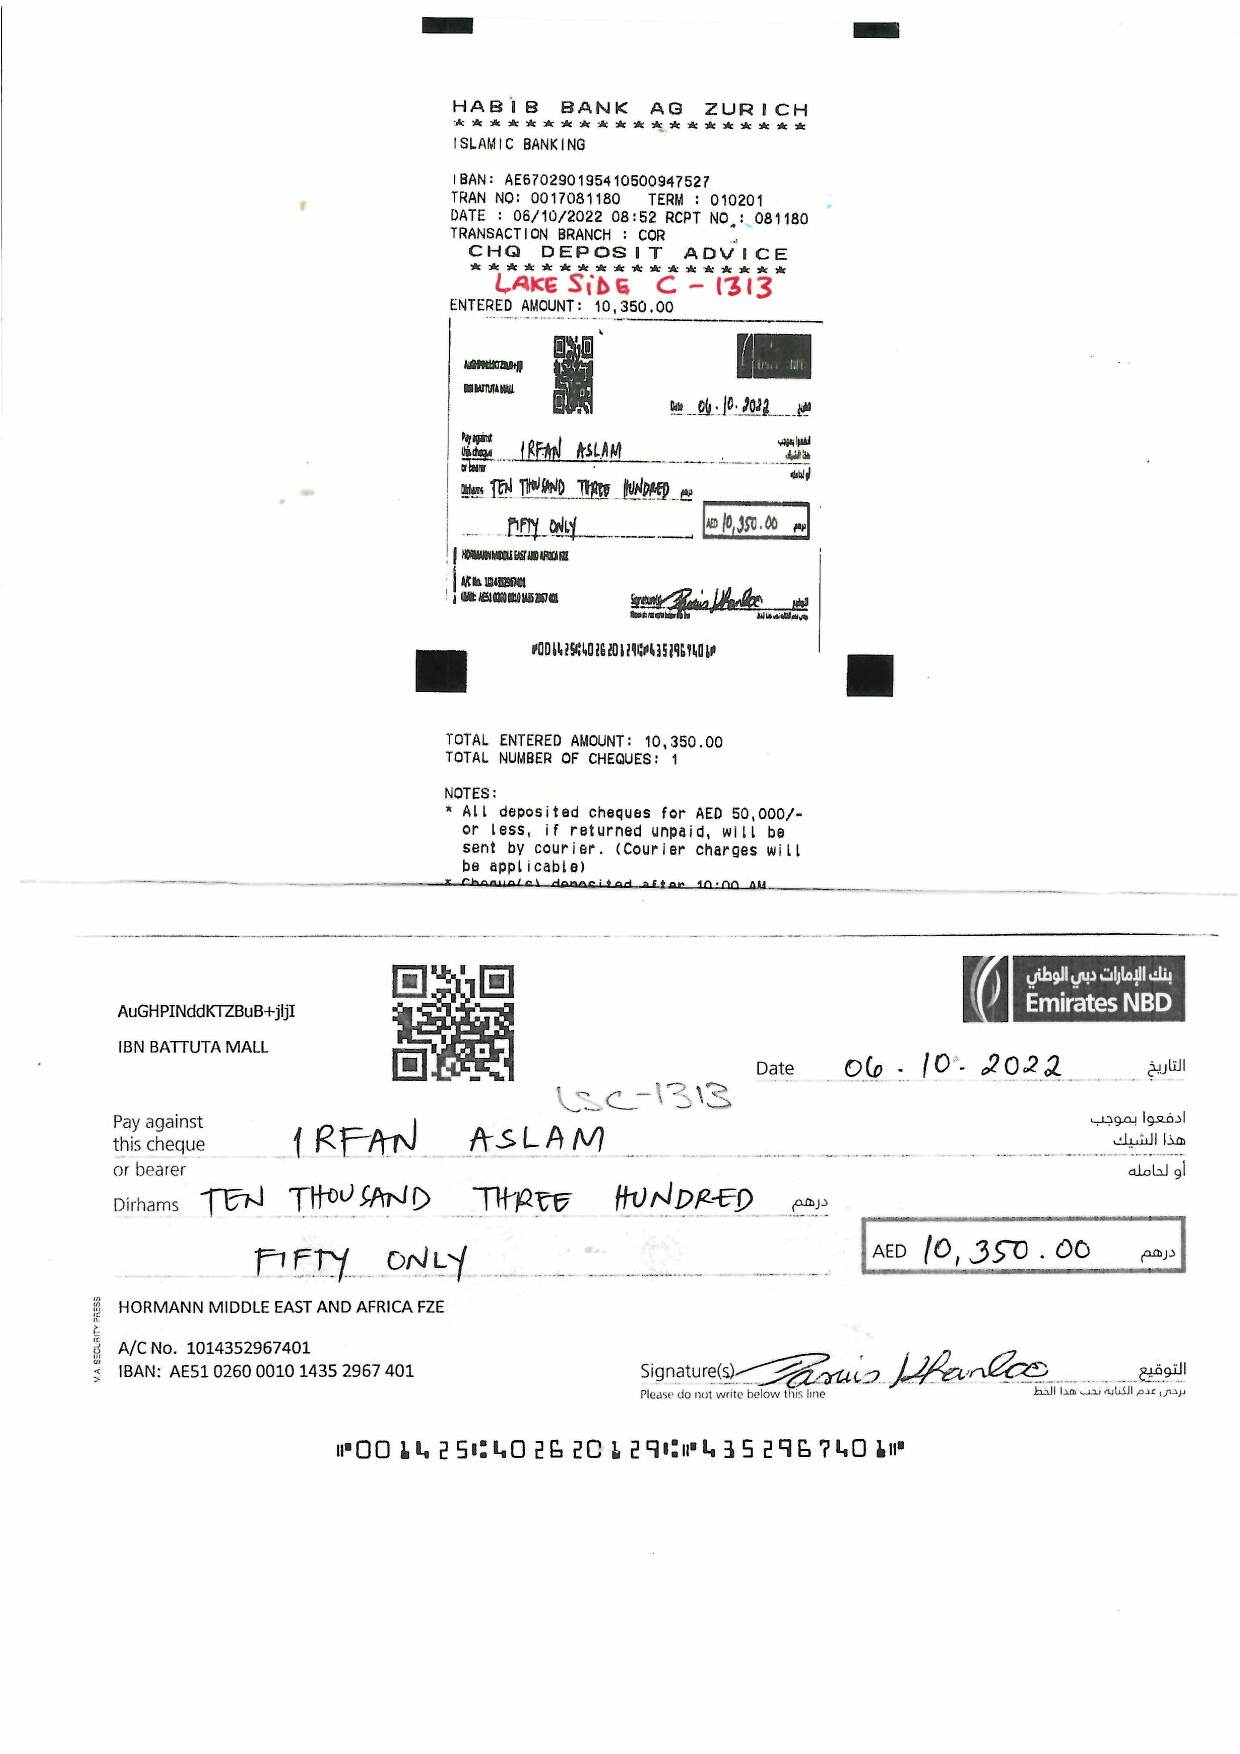 HABIB BANK AG ZURICH
********************
ISLAMIC BANKING
IBAN: AE670290195410500947527
TRAN NO: 0017081180 TERM : 010201
DATE : 06/10/2022 08:52 RCPT NO.: 081180
TRANSACTION BRANCH : COR
CHQ DEPOSIT ADVICE
******************
LAKE SIDE C-1313
ENTERED AMOUNT: 10,350.00
IBN BATTUTA MALL
Date 06.10.2022 التاريخ
Pay against
this cheque IRFAN ASLAM
or bearer
Dirhams TEN THOUSAND THREE HUNDRED درهم
FIFTY ONLY AED 10,350.00 درهم
HORMANN MIDDLE EAST AND AFRICA FZE
A/C No. 1014352967401
IBAN: AE51 0260 0010 1435 2967 401
Signature(s) التوقيع
Please do not write below this line
001425 402620129 4352967401
TOTAL ENTERED AMOUNT: 10,350.00
TOTAL NUMBER OF CHEQUES: 1
NOTES:
* All deposited cheques for AED 50,000/-
or less, if returned unpaid, will be
sent by courier. (Courier charges will
be applicable)
* Cheque(s) deposited after 10:00 AM
بنك الإمارات دبي الوطني
Emirates NBD
AuGHPINddKTZBuB+jljI
IBN BATTUTA MALL
Date 06-10-2022 التاريخ
LSC-1313
Pay against ادفعوا بموجب
this cheque IRFAN ASLAM هذا الشيك
or bearer أو لحامله
Dirhams TEN THOUSAND THREE HUNDRED درهم
FIFTY ONLY AED 10,350.00 درهم
HORMANN MIDDLE EAST AND AFRICA FZE
V.A SECURITY PRESS
A/C No. 1014352967401
IBAN: AE51 0260 0010 1435 2967 401
Signature(s) التوقيع
Please do not write below this line يرجى عدم الكتابة تحت هذا الخط
⑈001425⑆402620129⑆⑈4352967401⑈